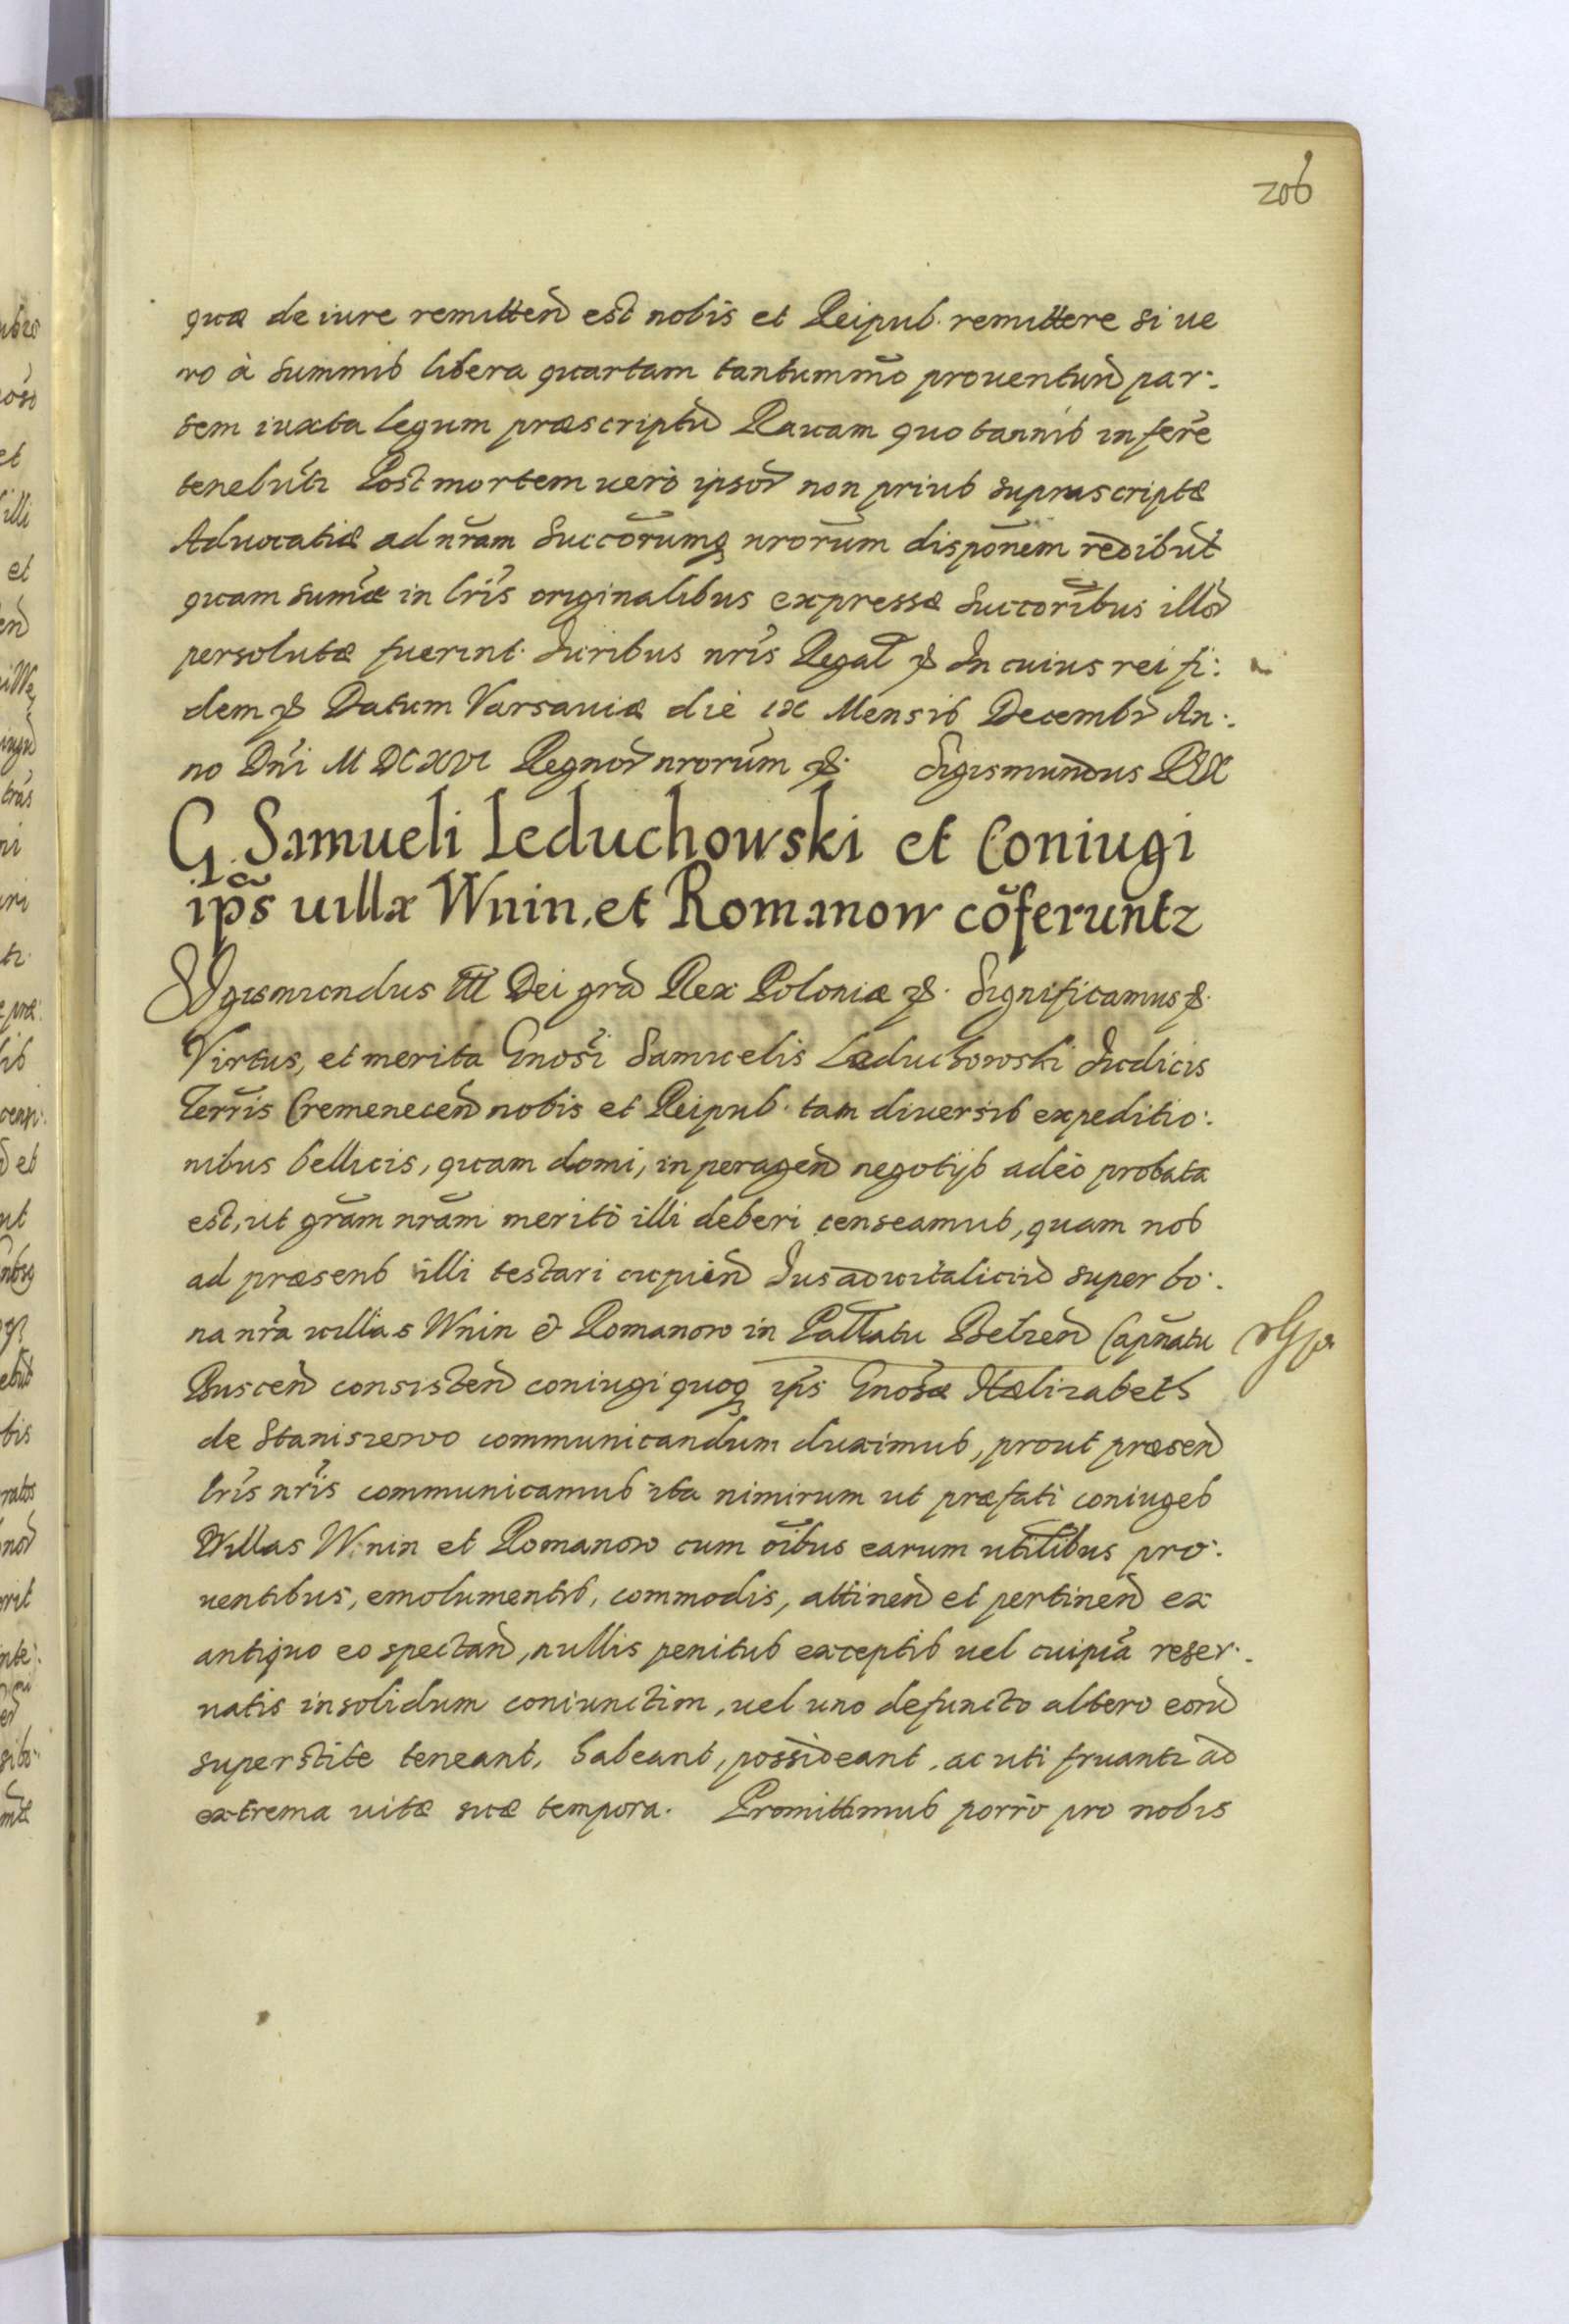 206
quæ de iure remitten̄ est nobis et Reipub. remittere si ue
ro à summis libera quartam tantummō prouentuū par:
tem iuxta legum præscriptū Rauam quotannis inferre
tenebūtr Post mortem uerò ipsor̄ non prius suprascriptæ
Aduocatiæ ad nr̄am Succōrumq3 nrorūm dispōnem redibūt
quam sum̄æ in lr̄is originalibus expressæ Succorībus illor̄
persolutæ fuerint. Iuribus nr̄is Regal̄ etc In cuius rei fi:
dem etc Datum Varsauiæ die ix Mensis Decembr̄ An:
no Dn̄i M DC XVI Regnor̄ nrorūm etc. Sigismundus REX
G. Samueli Leduchowski et Coniugi
ip̄s uillæ Wnin, et Romanow cōferuntr
Sigismundus III Dei grā Rex Poloniæ etc. Significamus etc.
Virtus, et merita Gnosī Samuelis Læduchowski Iudicis
Terrīs Cremenecen̄ nobis et Reipub. tam diuersis expeditio:
nibus bellicis, quam domi, in peragen̄ negotijs adeò probata
est, ut grām nrām meritò illi deberi censeamus, quam nos
ad præsens illi testari cupien̄ Ius aduitalitiū super bo:
na nrā uillas Wnin & Romanow in Pallatu Belzen̄ Capn̄atu
Buscen̄ consisten̄ coniugi quoq3 ip̄s Gnosæ Hælizabeth
de Staniszewo communicandum duximus, prout præsen̄
lrīs nrīs communicamus ita nimirum ut præfati coniuges
Villas Wnin et Romanow cum ōibus earum utilībus pro:
uentibus, emolumentis, commodis, attinen̄ et pertinen̄ ex
antiquo eo spectan̄, nullis penitus exceptis uel cuipiā reser:
uatis insolidum coniunctim, uel uno defuncto altero eorū
superstite teneant, habeant, possideant, ac uti fruantr ad
extrema uitæ suæ tempora. Promittimus porrò pro nobis